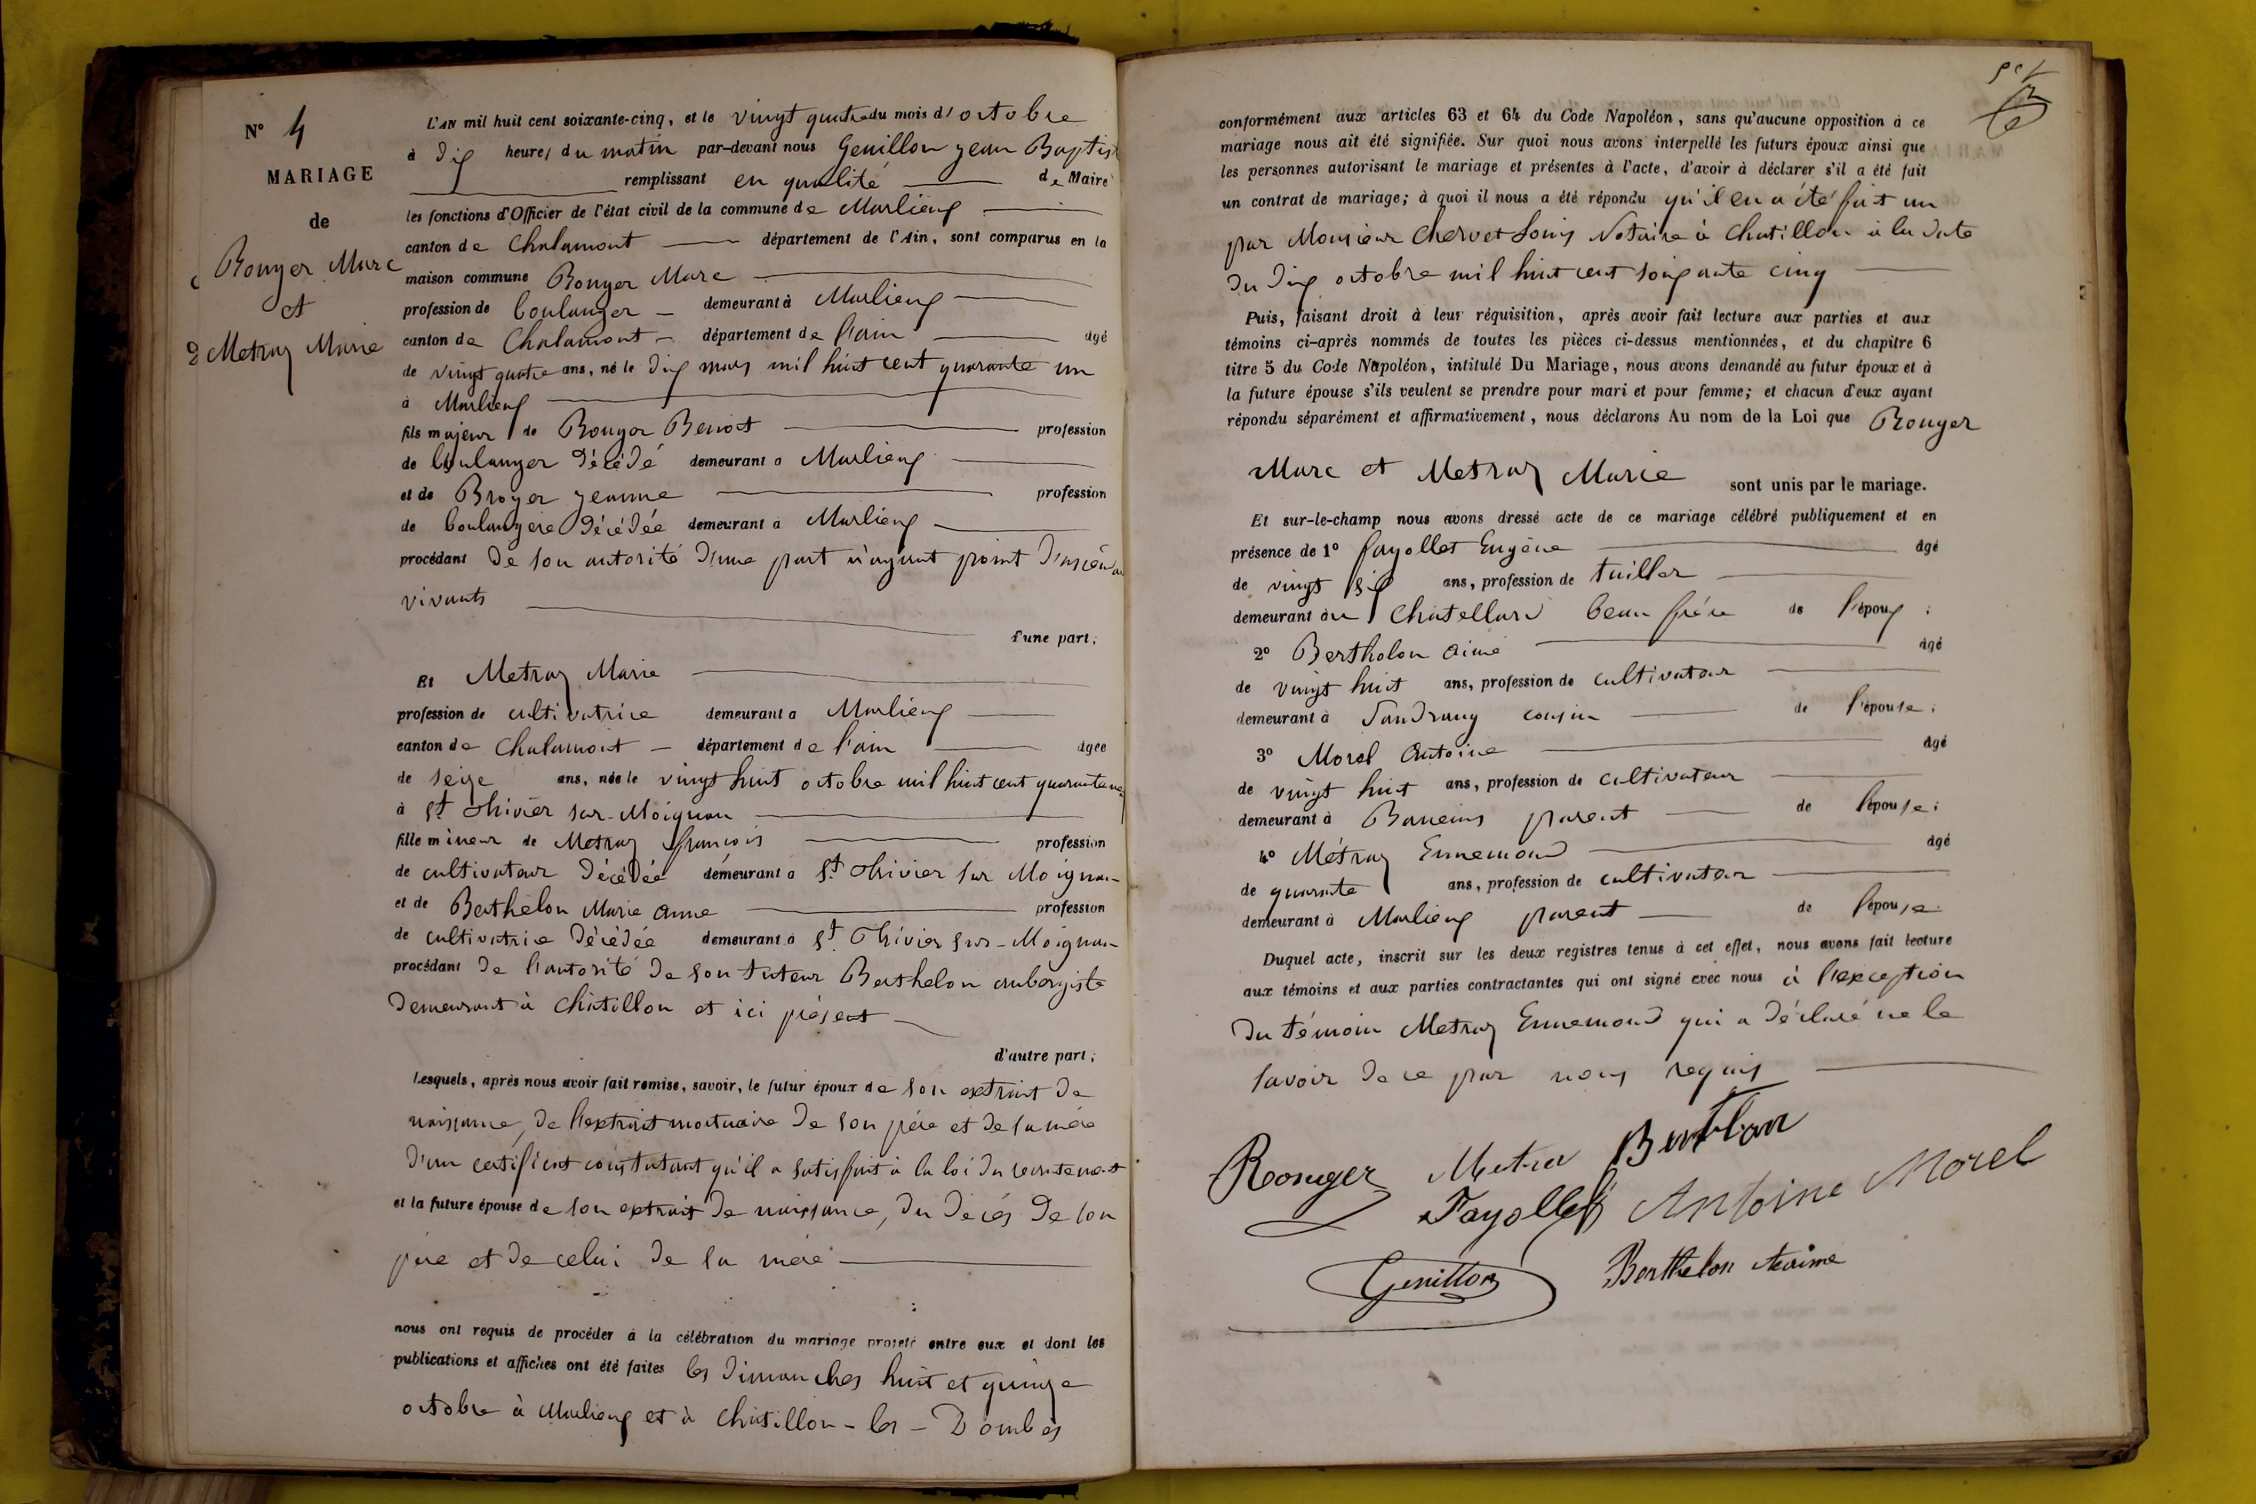 N° 4
MARIAGE
de
Rouger Marc
et
Metraz Marie
L'AN mil huit cent soixante-cinq, et le vingt quatre du mois d'octobre
à dix heures du matin par-devant nous Genillon jean Baptiste
remplissant en qualité de Maire
les fonctions d'Officier de l'état civil de la commune de Marlieux
canton de Chalamont département de l'Ain, sont comparus en la
maison commune Rouger Marc
profession de boulanger demeurant à Marlieux
canton de Chalamont département de l'ain âgé
de vingt quatre ans, né le dix mars mil huit cent quarante un
à Marlieux
fils majeur de Rouger Benoit profession
de boulanger décédé demeurant à Marlieux
et de Broyer jeanne profession
de boulangère décédée demeurant à Marlieux
procédant de son autorité d'une part n'ayant point d'ascend
vivants
d'une part;
Et Metraz Marie
profession de cultivatrice demeurant à Marlieux
canton de Chalamont département de l'ain âgée
de seize ans, née le vingt huit octobre mil huit cent quarante neuf
à St thivier sur-Moignan
fille mineur de Metraz françois profession
de cultivateur décédée demeurant à St thivier sur Moignan
et de Berthelon Marie anne profession
de cultivatrice décédée demeurant à St Thivier sur-Moignan
procédant de l'autorité de son tuteur Berthelon aubergiste
demeurant à Châtillon et ici présent
d'autre part;
Lesquels, après nous avoir fait remise, savoir, le futur époux de son extrait de
naissance, de l'extrait mortuaire de son père et de sa mère
d'un certificat constatant qu'il a satisfait à la loi du recrutement
et la future épouse de son extrait de naissance, du décés de son
père et de celui de sa mère
nous ont requis de procéder à la célébration du mariage projeté entre eux et dont les
publications et affiches ont été faites les dimanches huit et quinze
octobre à Marlieux et à Châtillon-les-Dombes
conformément aux articles 63 et 64 du Code Napoléon, sans qu'aucune opposition à ce
mariage nous ait été signifiée. Sur quoi nous avons interpellé les futurs époux ainsi que
les personnes autorisant le mariage et présentes à l'acte, d'avoir à déclarer s'il a été fait
un contrat de mariage; à quoi il nous a été répondu qu'il en a été fait un
par Monsieur Chervet Louis Notaire à Chatillon à la date
du dix octobre mil huit cent soixante cinq
Puis, faisant droit à leur réquisition, après avoir fait lecture aux parties et aux
témoins ci-après nommés de toutes les pièces ci-dessus mentionnées, et du chapitre 6
titre 5 du Code Napoléon, intitulé Du Mariage, nous avons demandé au futur époux et à
la future épouse s'ils veulent se prendre pour mari et pour femme; et chacun d'eux ayant
répondu séparément et affirmativement, nous déclarons Au nom de la Loi que Rouger
Marc et Metraz Marie sont unis par le mariage.
Et sur-le-champ nous avons dressé acte de ce mariage célébré publiquement et en
présence de 1° fayollet Eugène âgé
de vingt six ans, profession de tuillier
demeurant au Chatellard beau frère de l'époux;
2° Bertholon aimé âgé
de vingt huit ans, profession de cultivateur
demeurant à Sandrans cousin de l'épouse;
3° Morel Antoine âgé
de vingt huit ans, profession de cultivateur
demeurant à Baneins parent de l'épouse;
4° Métraz Ennemond âgé
de quarante ans, profession de cultivateur
demeurant à Marlieux parent de l'épouse.
Duquel acte, inscrit sur les deux registres tenus à cet effet, nous avons fait lecture
aux témoins et aux parties contractantes qui ont signé avec nous à l'exception
du témoin Metraz Ennemond qui a déclaré ne le
savoir de ce par nous requis
Rouger Metra
Fayollet Antoine Morel
Genillon Berthelon